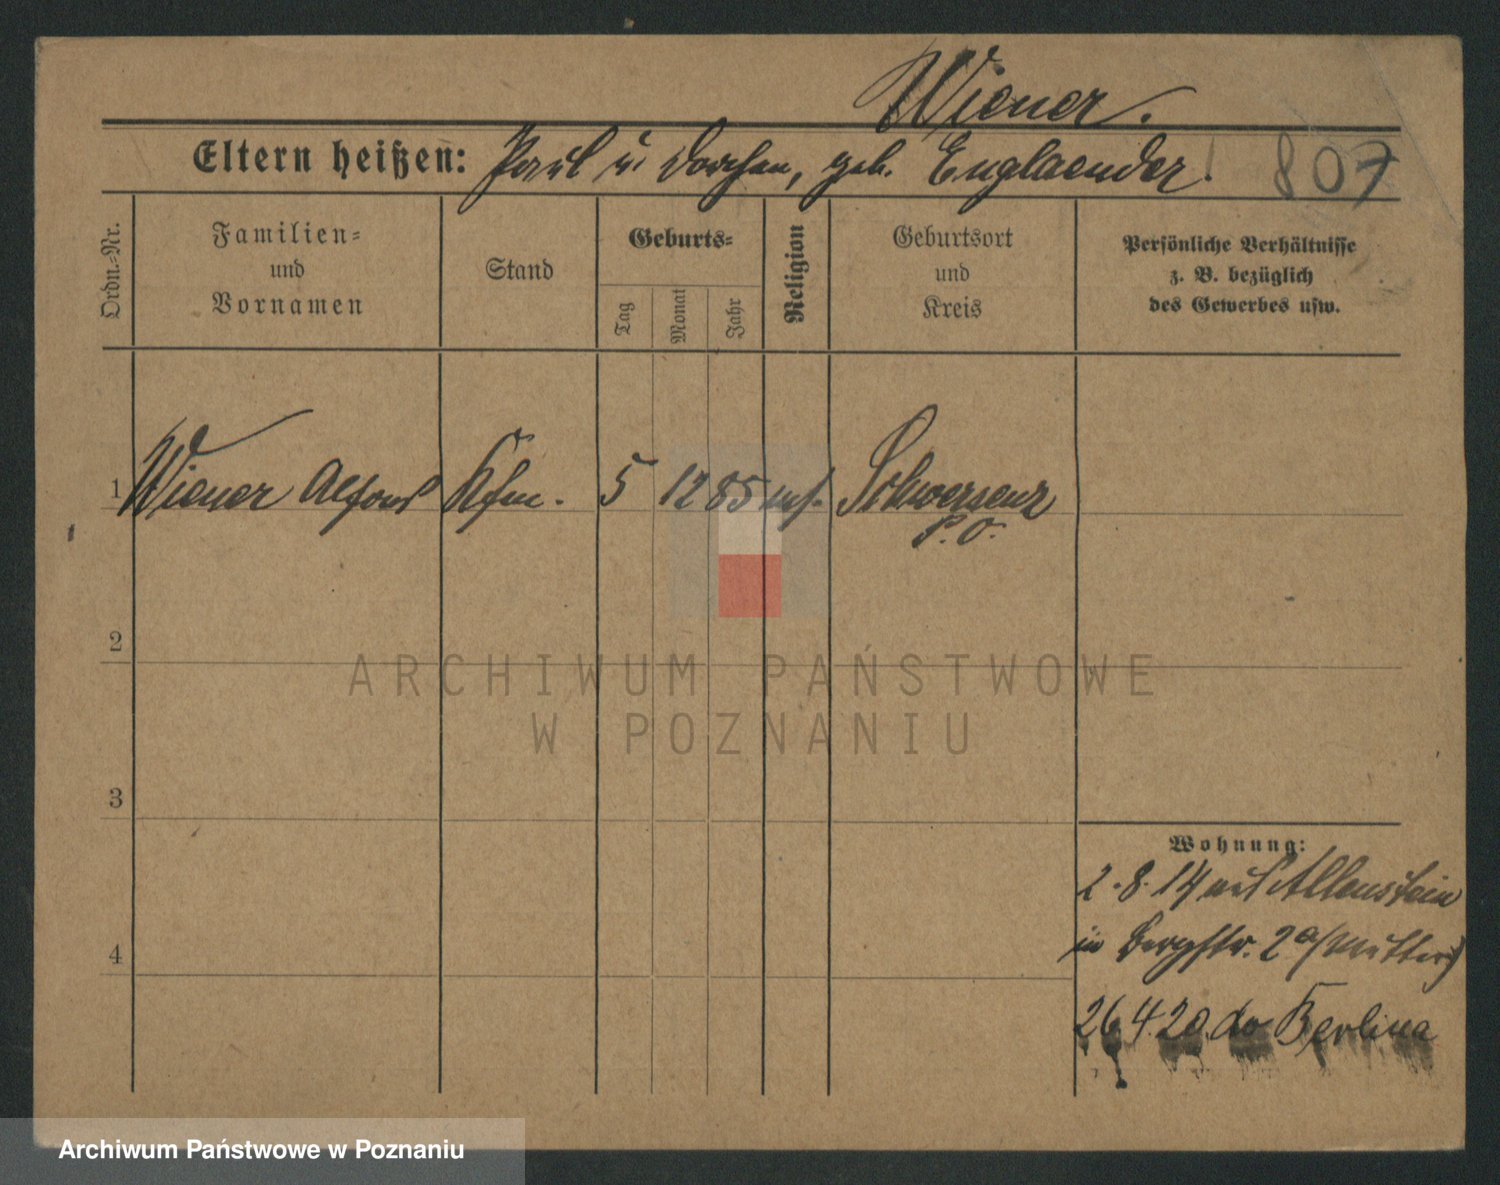 Wiener.
Eltern heißen: Paul u. Dorchen, geb. Englaender. 807
Ordn.-Nr.
Familien-
und
Vornamen
Stand
Geburts-
Tag
Monat
Jahr
Religion
Geburtsort
und
Kreis
Persönliche Verhältnisse
z. B. bezüglich
des Gewerbes usw.
1 Wiener Alfons Kfm. 5 12 85 mos. Schwersenz
P. O.
2
3
4
Wohnung:
2.8.14 aus Allenstein
in Bergstr. 2a (Mutter)
26 4 20. do Berlina
ARCHIWUM PAŃSTWOWE
W POZNANIU
Archiwum Państwowe w Poznaniu